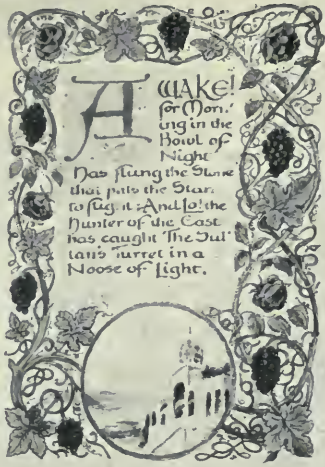 AWAKE!
for Morn-
ing in the
Bowl of
Night
Has flung the Stone
that puts the Stars
to flight: And Lo! the
Hunter of the East
has caught The Sul
tan's Turret in a
Noose of Light.